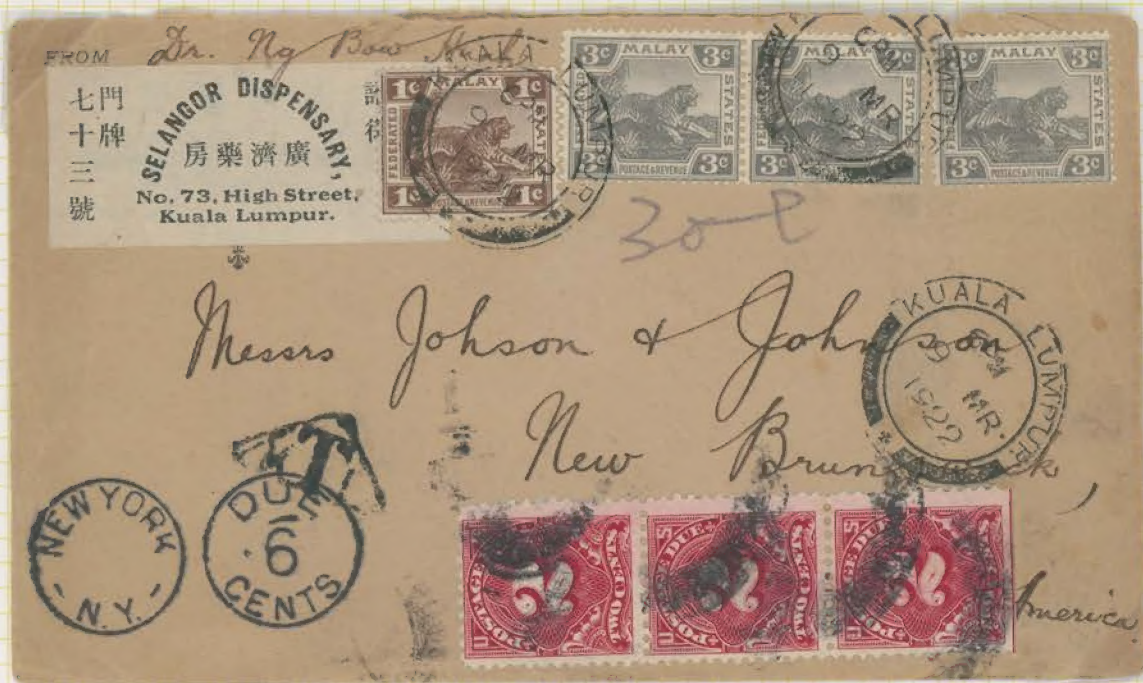 FROM Dr. Ng Bow
七十三號
門牌
SELANGOR DISPENSARY,
房藥濟廣
No. 73, High Street,
Kuala Lumpur.
1c MALAY 1c
FEDERATED STATES
1c POSTAGE & REVENUE 1c
3c MALAY 3c
FEDERATED STATES
3c POSTAGE & REVENUE 3c
3c MALAY 3c
FEDERATED STATES
3c POSTAGE & REVENUE 3c
3c MALAY 3c
STATES
3c POSTAGE & REVENUE 3c
KUALA LUMPUR
MR
LUMPUR
MR
Messrs Johson & Johnson
New Brunswick,
America
KUALA LUMPUR
9 MR.
1922
T
NEW YORK
N.Y.
DUE
6
CENTS
POSTAGE DUE
2
POSTAGE DUE
2
POSTAGE DUE
2